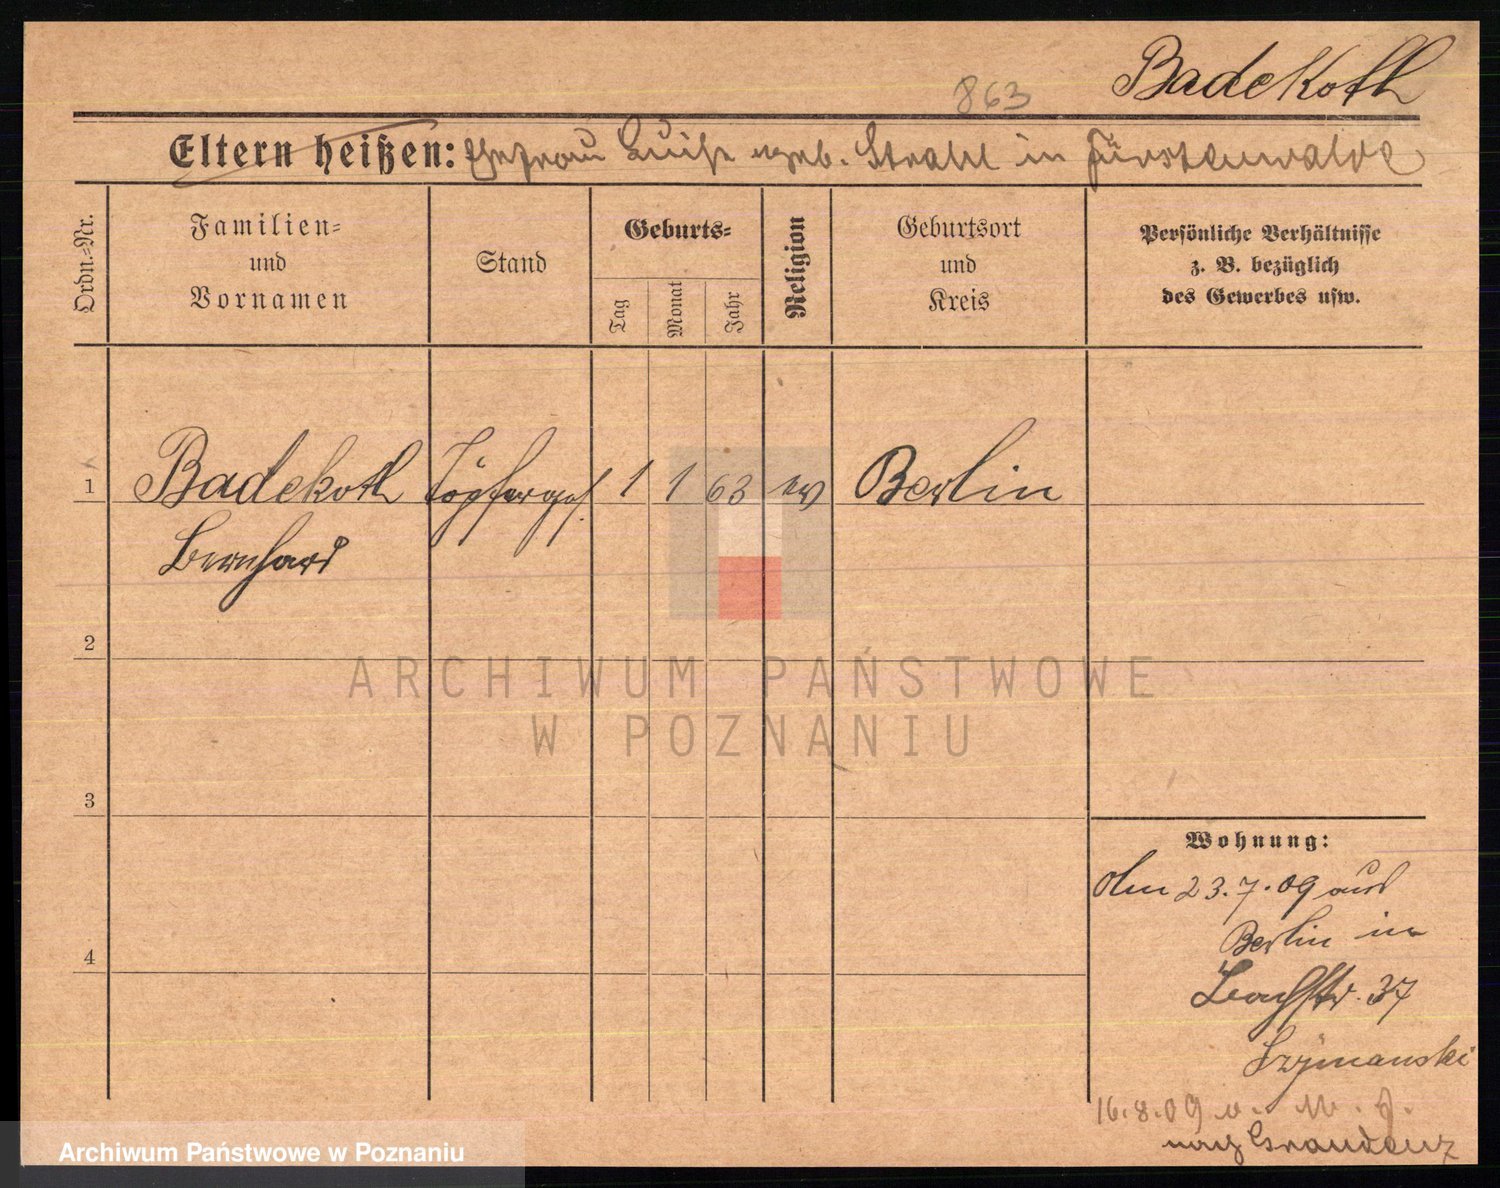 863 Badekoth
Eltern heißen: Ehefrau Luise geb. Strahl in Fürstenwalde
Ordn.-Nr.
Familien-
und
Vornamen
Stand
Geburts-
Tag
Monat
Jahr
Religion
Geburtsort
und
Kreis
Persönliche Verhältnisse
z. B. bezüglich
des Gewerbes usw.
1 Badekoth Töpferges. 1 1 63 ev Berlin
Bernhard
2
3
4
ARCHIWUM PAŃSTWOWE
W POZNANIU
Wohnung:
Am 23.7.09 aus
Berlin in
37
Szymanski
16.8.09
nach Graudenz
Archiwum Państwowe w Poznaniu